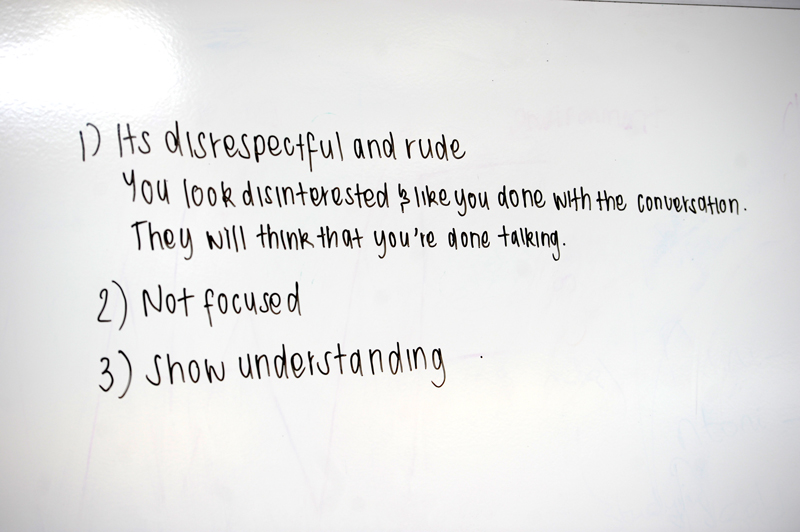 1) Its disrespectful and rude
You look disinterested & like you done with the conversation.
They will think that you're done talking.
2) Not focused
3) Show understanding